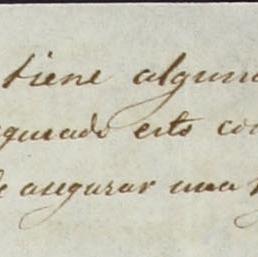 tiene alguna
esto co
de asegurar una